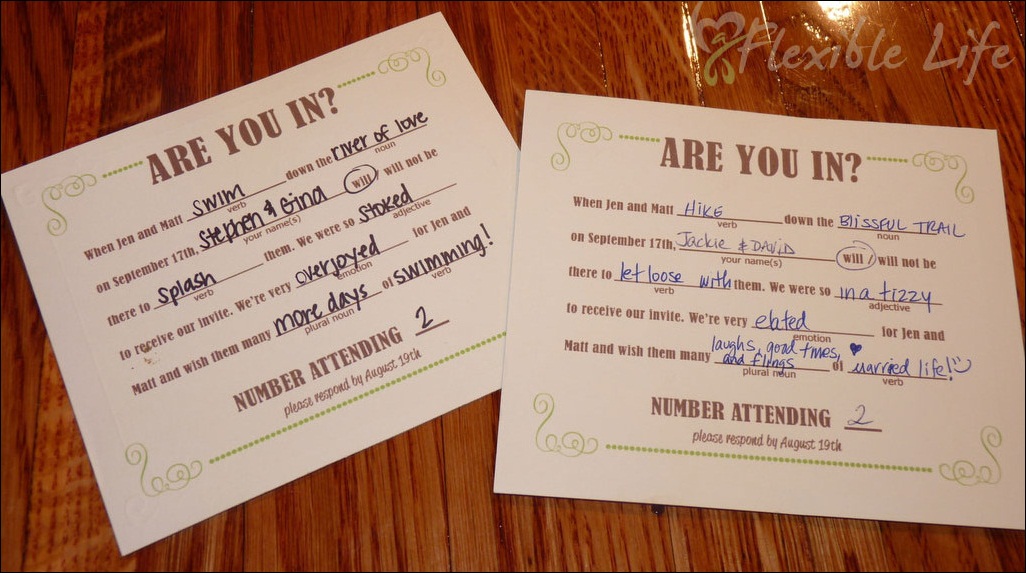 a Flexible Life
ARE YOU IN?
When Jen and Matt swim down the river of love
verb noun
on September 17th, Stephen & Gina will / will not be
your name(s)
there to splash them. We were so stoked
verb adjective
to receive our invite. We're very overjoyed for Jen and
emotion
Matt and wish them many more days of swimming!
plural noun verb
NUMBER ATTENDING 2
please respond by August 19th
ARE YOU IN?
When Jen and Matt HIKE down the BLISSFUL TRAIL
verb noun
on September 17th, Jackie & DAVID will / will not be
your name(s)
there to let loose with them. We were so in a tizzy
verb adjective
to receive our invite. We're very elated for Jen and
emotion
laughs, good times,
Matt and wish them many and flings of married life!
plural noun verb
NUMBER ATTENDING 2
please respond by August 19th